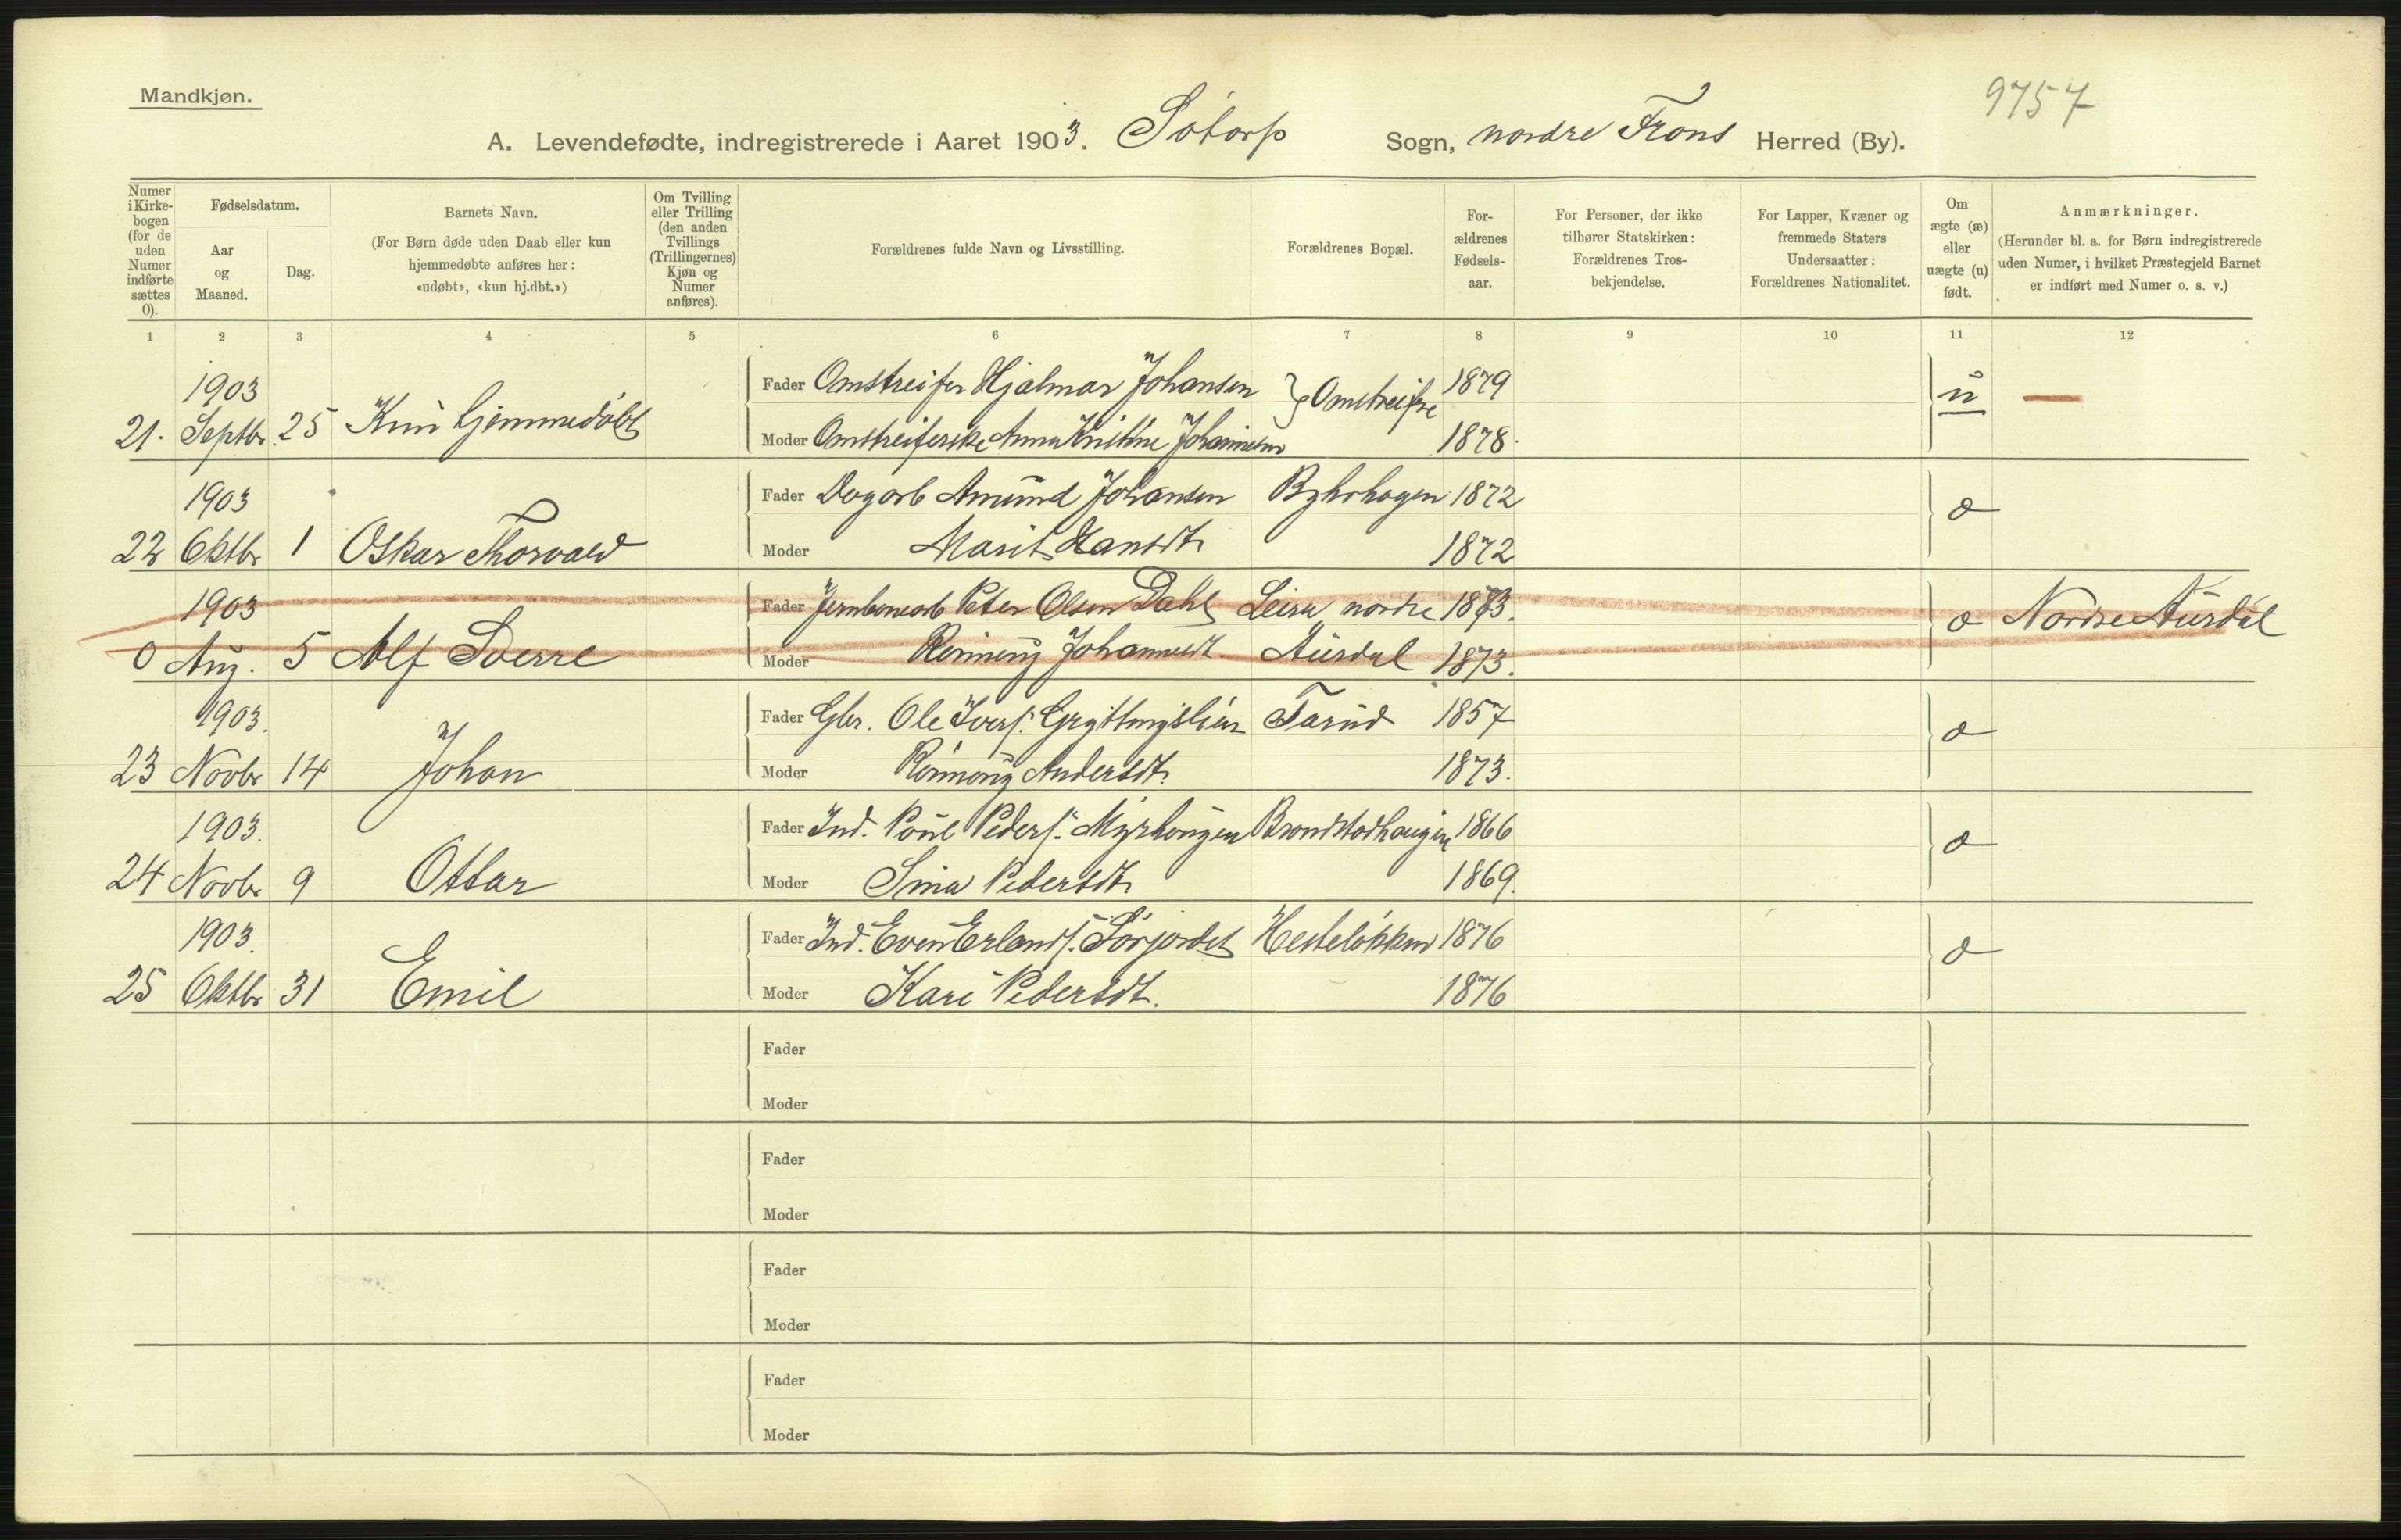 Mandkjøn.
9757
A. Levendefødte, indregistrerede i Aaret 1903. Sødorp Sogn, nordre Frons Herred (By).
Numer i Kirkebogen (for de uden Numer indførte sættes 0).
Fødselsdatum.
Aar og Maaned.
Dag.
Barnets Navn.
(For Børn døde uden Daab eller kun hjemmedøbte anføres her: «udøbt», «kun hj.dbt.»)
Om Tvilling eller Trilling (den anden Tvillings (Trillingernes) Kjøn og Numer anføres).
Forældrenes fulde Navn og Livsstilling.
Forældrenes Bopæl.
Forældrenes Fødselsaar.
For Personer, der ikke tilhører Statskirken: Forældrenes Trosbekjendelse.
For Lapper, Kvæner og fremmede Staters Undersaatter: Forældrenes Nationalitet.
Om ægte (æ) eller uægte (u) født.
Anmærkninger.
(Herunder bl. a. for Børn indregistrerede uden Numer, i hvilket Præstegjeld Barnet er indført med Numer o. s. v.)
1 2 3 4 5 6 7 8 9 10 11 12
1903 Fader Omstreifer Hjalmar Johansen } Omstreifere 1879 u —
21. Septbr. 25 Kun hjemmedøbt Moder Omstreiferske Anna Kristine Johannesen 1878.
1903 Fader Dagarb Amund Johansen 1872 æ
22 Oktbr 1 Oskar Thorvald Moder Marit Hansdt. 1872
1903 Fader Jernbanearb Peter Olsen Dahl Leira nordre 1873. æ Nordre Aurdal
0 Aug. 5 Alf Sverre Moder Rønnaug Johannesdt. Aurdal 1873.
1903. Fader Gbr. Ole Ivers. Gryttingslien Farud 1857 æ
23 Novbr 14 Johan Moder Rønnaug Andersdt. 1873.
1903. Fader Ind. Poul Peders. Myrhaugen Brandstadhaugen 1866 æ
24 Novbr 9 Ottar Moder Sina Pedersdt. 1869.
1903. Fader Ind. Even Erlands. Sørjordet Hesteløkken 1876 æ
25 Oktbr 31 Emil Moder Kari Pedersdt. 1876
Fader
Moder
Fader
Moder
Fader
Moder
Fader
Moder